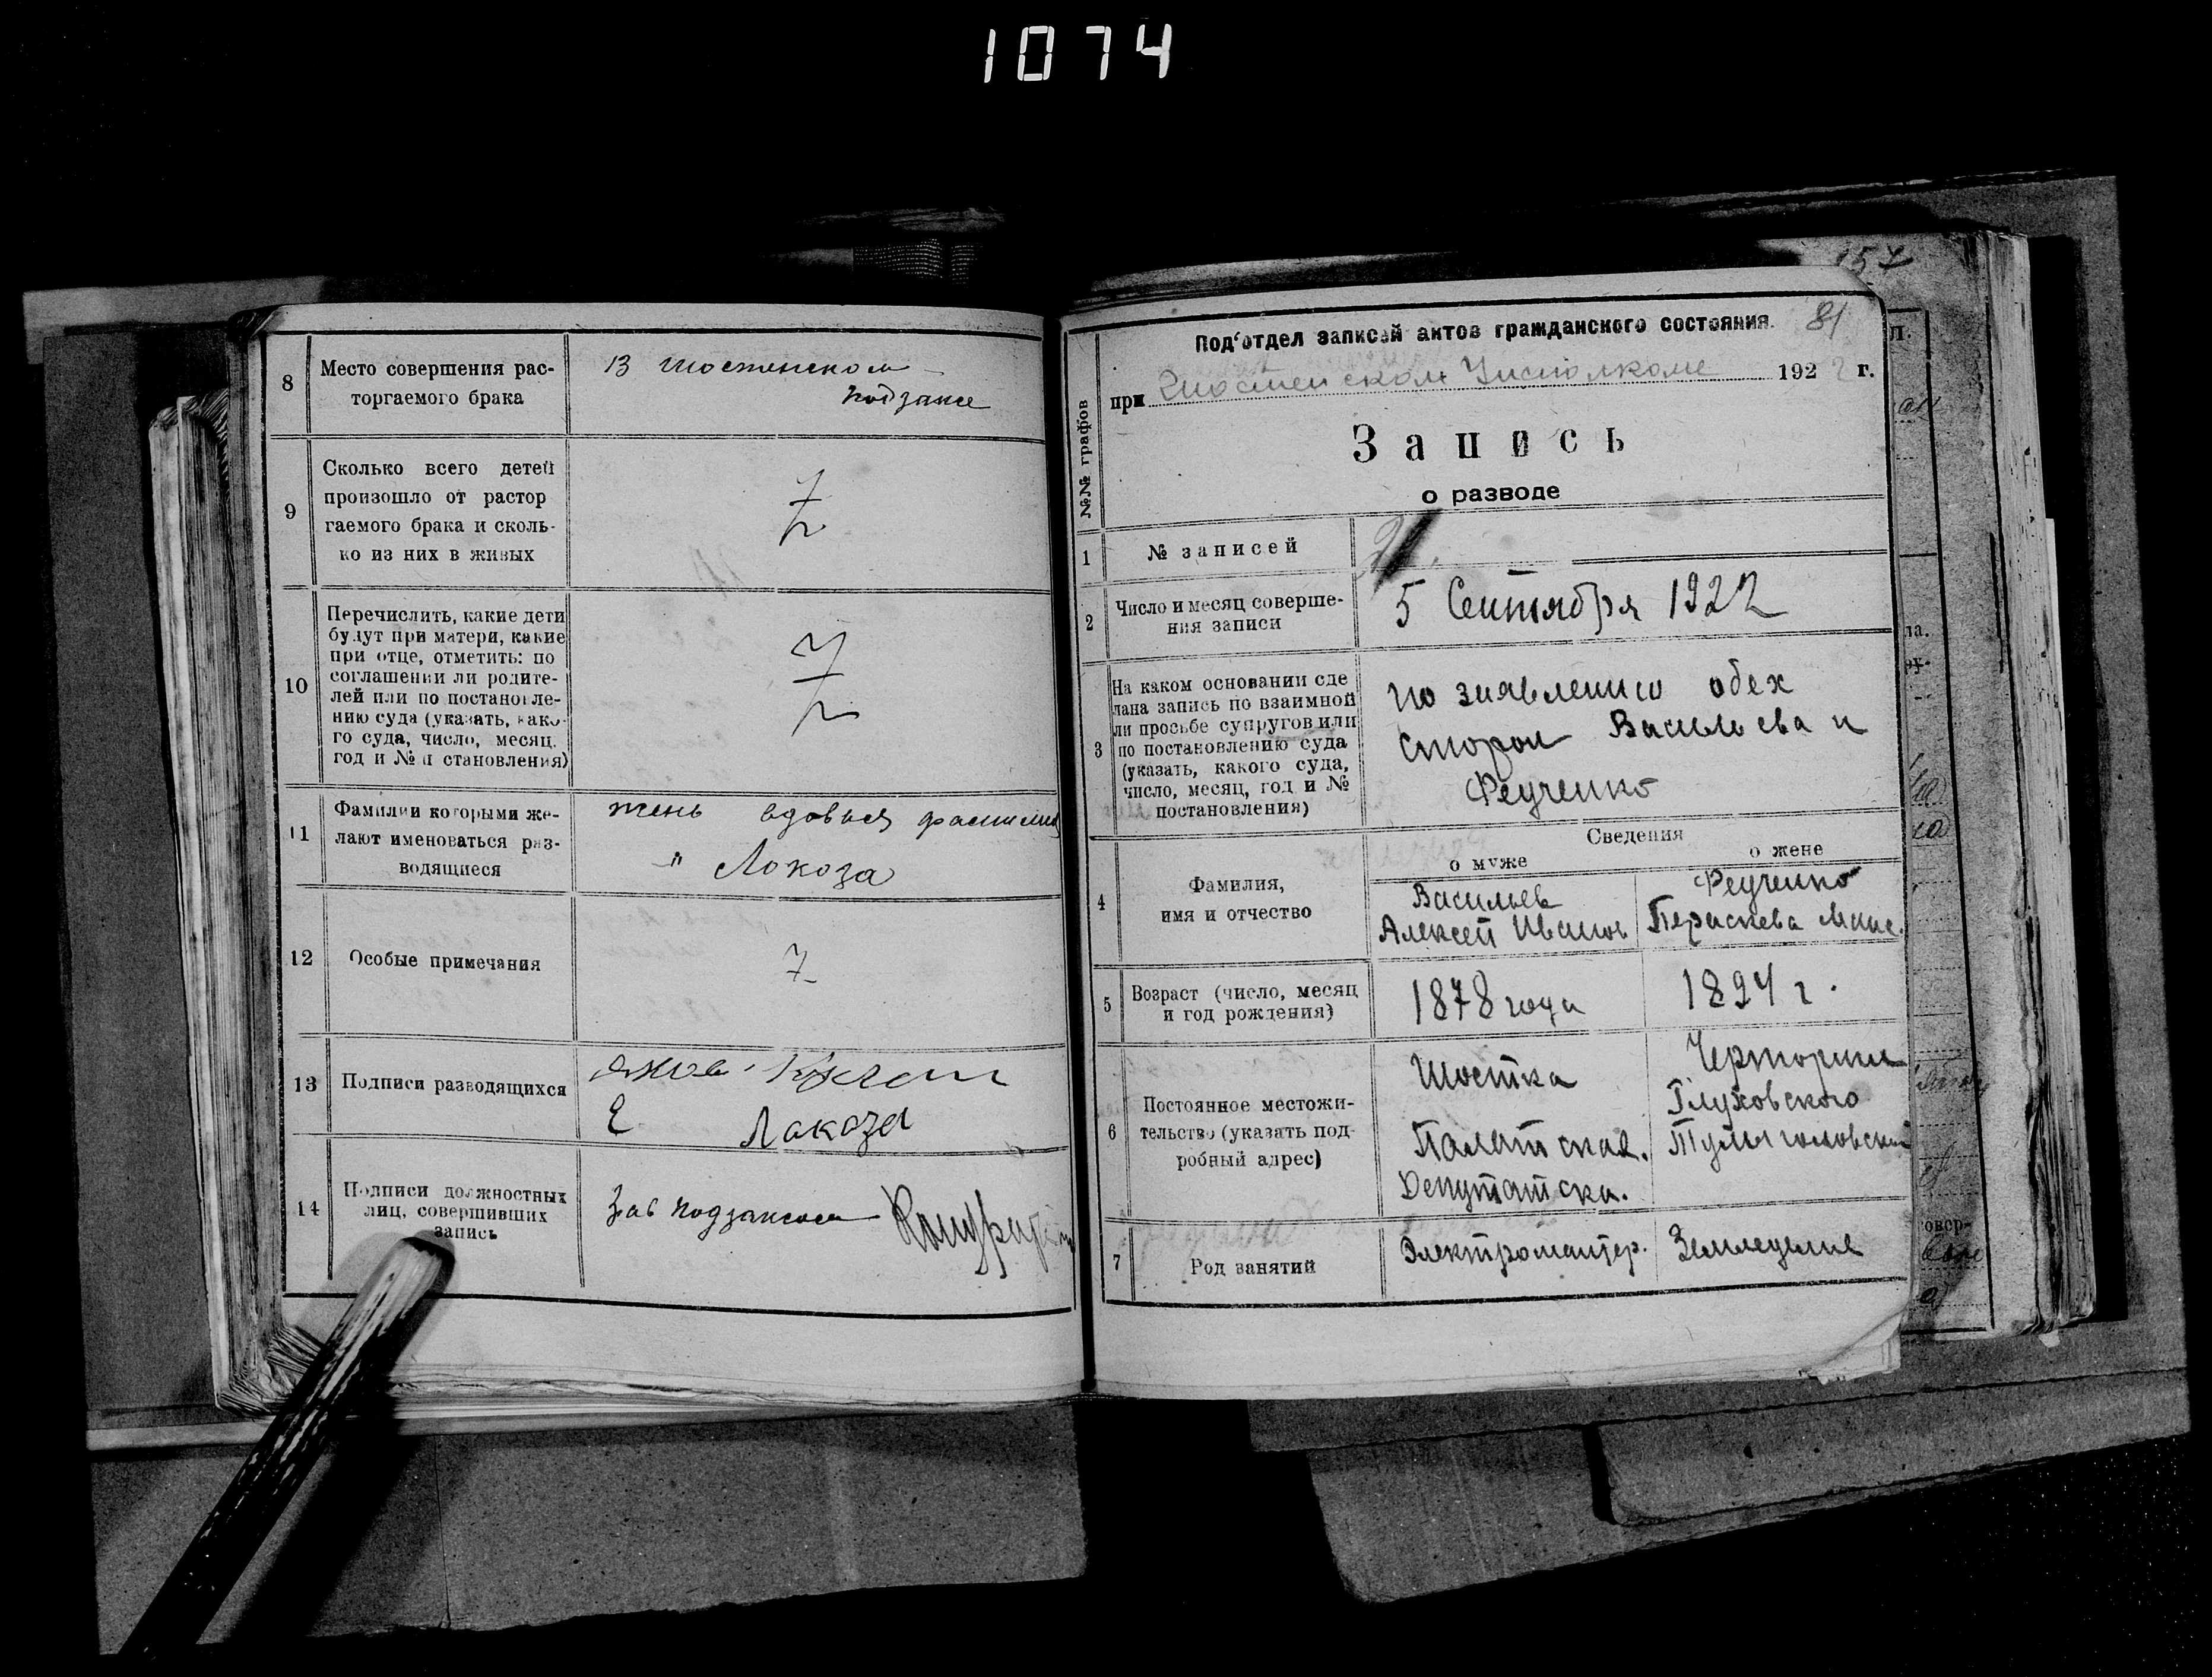 1074
8
Место совершения рас-
торгаемого брака
В Шостенском
подзаксе
9
Сколько всего детей
произошло от растор
гаемого брака и сколь-
ко из них в живых
10
Перечислить, какие дети
будут при матери, какие
при отце, отметить: по
соглашении ли родите-
лей или по постановле-
нию суда (указать, како-
го суда, число, месяц,
год и № п становления)
11
Фамилии которыми же-
лают именоваться раз-
водящиеся
жень вдовья фамилия
" Локоза
12
Особые примечания
13
Подписи разводящихся
Е Лакоза
14
Подписи должностных
лиц, совершивших
запись
Зав подзаксом
157
81
Под'отдел записей актов гражданского состояния.
при Шостенском Исполкоме 1922 г.
№№ графов
Запись
о разводе
1
№ записей
2
Число и месяц соверше-
ния записи
5 Сентября 1922
3
На каком основании сде
лана запись по взаимной
ли просьбе супругов или
по постановлению суда
(указать, какого суда,
число, месяц, год и №
постановления)
по заявлению обех
сторон Васильева и
Федченко
Сведения
о муже
о жене
4
Фамилия,
имя и отчество
Васильев
Алексей Иванов
Федченко
Параскева Макс.
5
Возраст (число, месяц
и год рождения)
1878 года
1894 г.
6
Постоянное местожи-
тельство (указать под-
робный адрес)
Шостка
Депутатска.
Глуховского
7
Род занятий
Электромантер.
Земледелие